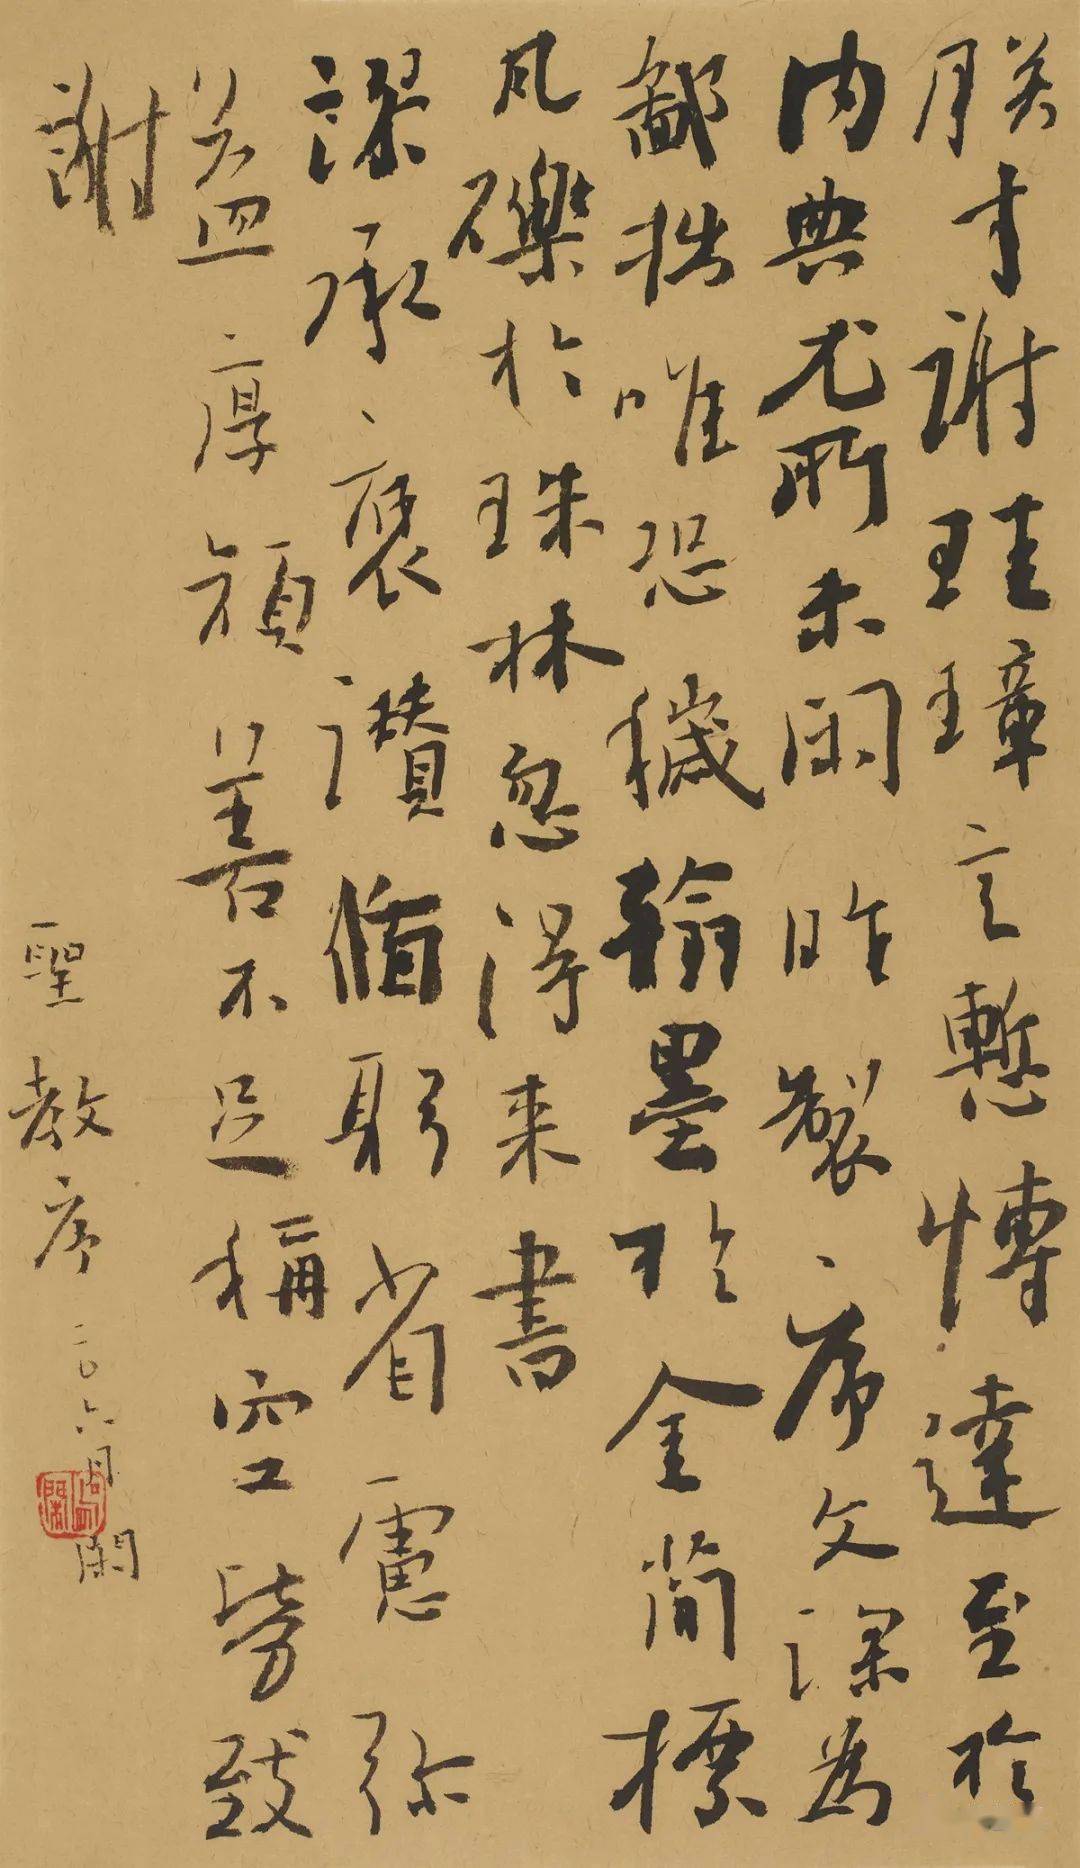 朕才謝珪璋言慙愽達至於
内典尤所未閑昨製序文深為
鄙拙唯恐穢翰墨於金簡標
瓦礫於珠林忽得来書
謬承褒讚循躬省慮弥
益厚顔善不足稱空勞致
謝
聖教序